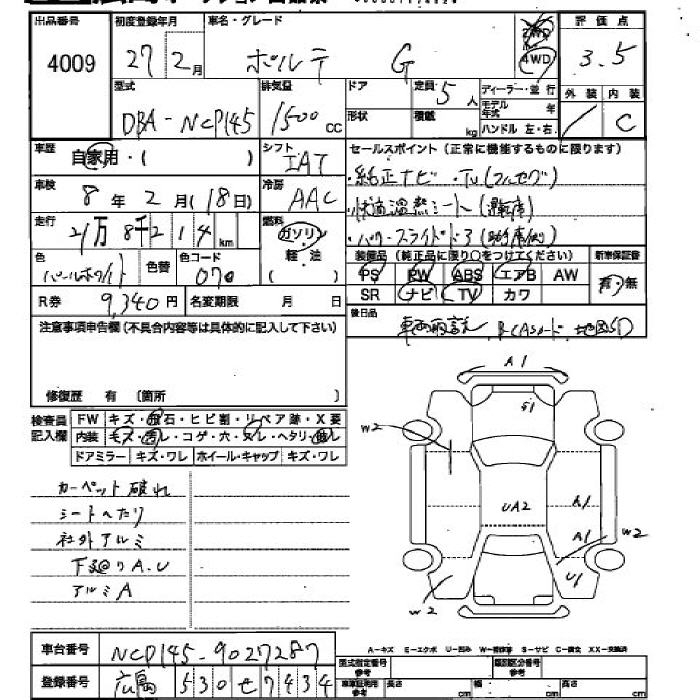 出品番号 初度登録年月 車名・グレード 2WD 4WD 評価点
4009 27年2月 ポルテ G 3.5
型式 排気量 ドア 定員 5人 ディーラー・並行 外装 内装
DBA-NCP145 1500cc 形状 積載 kg モデル年式 ハンドル 左・右 C
車歴 自家用・( ) シフト IAT セールスポイント(正常に機能するものに限ります)
車検 8年2月(18日) 冷房 AAC ・純正ナビ・TV(フルセグ)
走行 21万8千214km 燃料 ガソリン ・快適温熱シート(運転席)
軽・油 ・パワースライドドア(助手席側)
色 パールホワイト 色替 色コード 070 ( ) 装備品(純正品に限り○をつけてください) 新車保証書
PS PW ABS エアB AW 有・無
R券 9,340円 名変期限 月 日 SR ナビ TV カワ
注意事項申告欄(不具合内容等は具体的に記入して下さい) 後日品 車両取説, B-CASカード, 地図SD
修復歴 有〔箇所 〕
検査員記入欄 FW キズ・飛石・ヒビ割・リペア跡・X要
内装 キズ・汚レ・コゲ・穴・ヌレ・ヘタリ・劣レ
ドアミラー キズ・ワレ ホイール・キャップ キズ・ワレ
カーペット破れ
シートへたり
社外アルミ
下廻りA.U
アルミA
A1
S1
W2
UA2
A1
A1
W2
U1
W2
A-キズ E-エクボ U-凹み W-補修等 S-サビ C-腐食 XX-交換済
車台番号 NCP145-9027287
登録番号 広島 530 せ 7434
型式指定番号 参考 類別区分番号 参考
車車証明用 参考 長さ cm 幅 cm 高さ cm